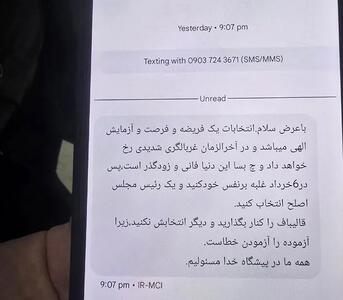 Yesterday • 9:07 pm
Texting with 0903 724 3671 (SMS/MMS)
Unread
باعرض سلام.انتخابات یک فریضه و فرصت و آزمایش
الهی میباشد و در آخرالزمان غربالگری شدیدی رخ
خواهد داد و چ بسا این دنیا فانی و زودگذر است.پس
در6خرداد غلبه برنفس خودکنید و یک رئیس مجلس
اصلح انتخاب کنید.
قالیباف را کنار بگذارید و دیگر انتخابش نکنید,زیرا
آزموده را آزمودن خطاست.
همه ما در پیشگاه خدا مسئولیم.
9:07 pm • IR-MCI